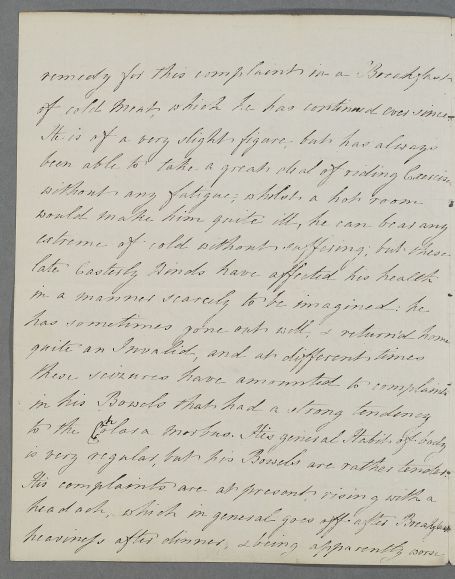 remedy for this complaint in a Breakfast
of cold meat, which he has continued ever since.
He is of a very slight figure; but has always
been able to take a great deal of riding Exercise
without any fatigue; whilst a hot room
would make him quite ill, he can bear any
extreme of cold without suffering; but these
late Easterly Winds have affected his health
in a manner scarcely to be imagined: he
has sometimes gone out well & return'd home
quite an Invalid, and at different times
these seizures have amounted to complaints
in his Bowels that had a strong tendency
to the Cholera morbus. His general Habit of body
is very regular, but his Bowels are rather tender.
His complaints are at present rising with a
headach, which in general goes off after Breakfast
heaviness after dinner, & being apparently worse